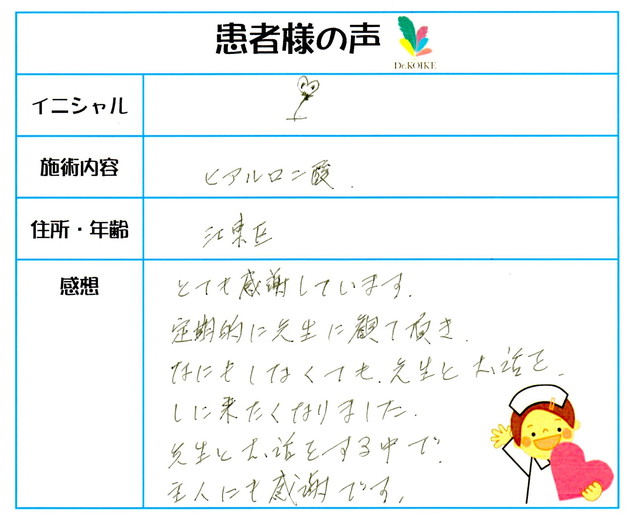 患者様の声
Dr.KOIKE
イニシャル
施術内容
ヒアルロン酸.
住所・年齢
江東区
感想
とても感謝しています.
定期的に先生に観て頂き.
なにもしなくても、先生とお話を.
しに来たくなりました.
先生とお話をする中で.
主人にも感謝です.